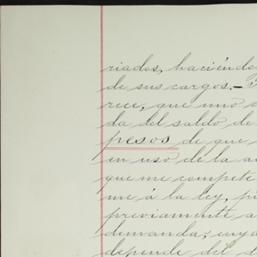 riados, haciéndo
de sus cargos.-
rece, que uno
da del saldo de
pesos de que
en uso de la
que me compete
me á la ley, p
previamente a
demanda; cuya
depende del